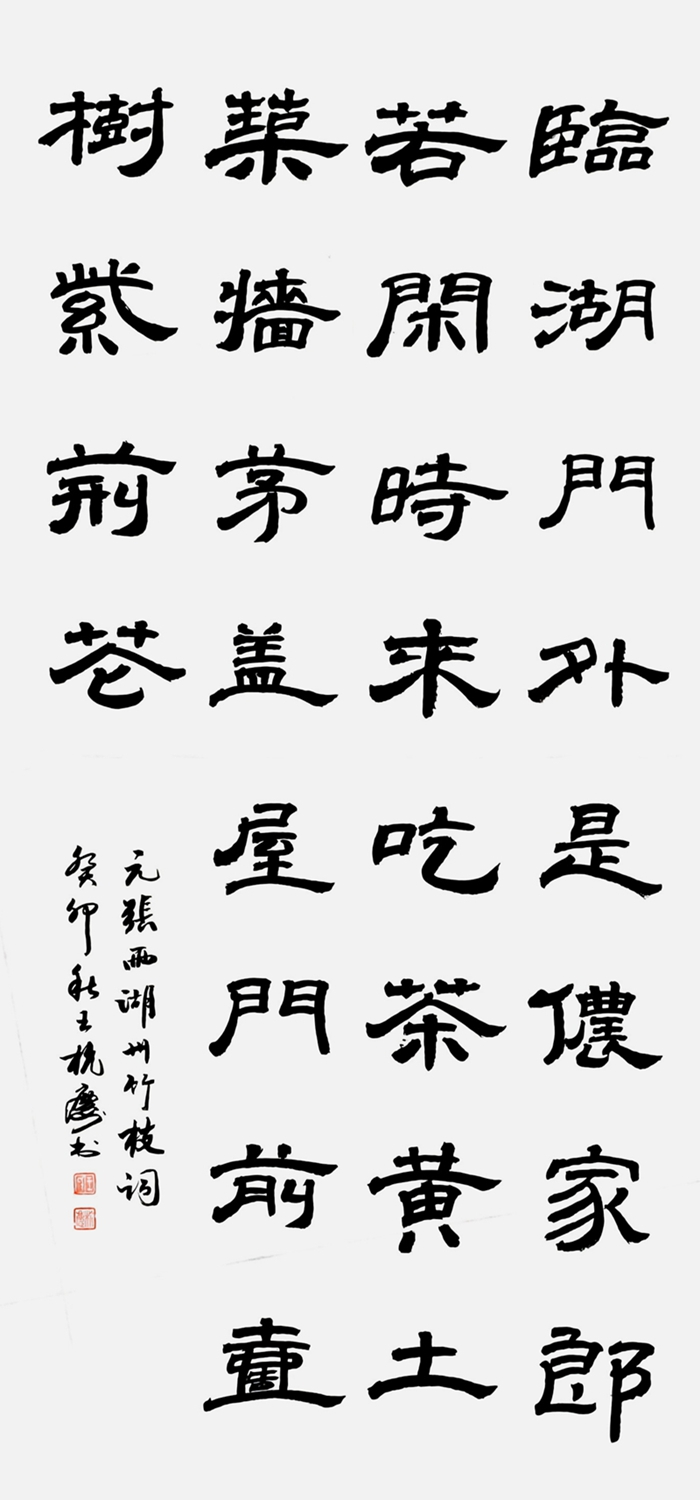 臨湖門外是儂家郎
若閑時来吃茶黄土
築牆茅盖屋門前壹
樹紫荊花
元張雨湖州竹枝詞
癸卯秋王杭书